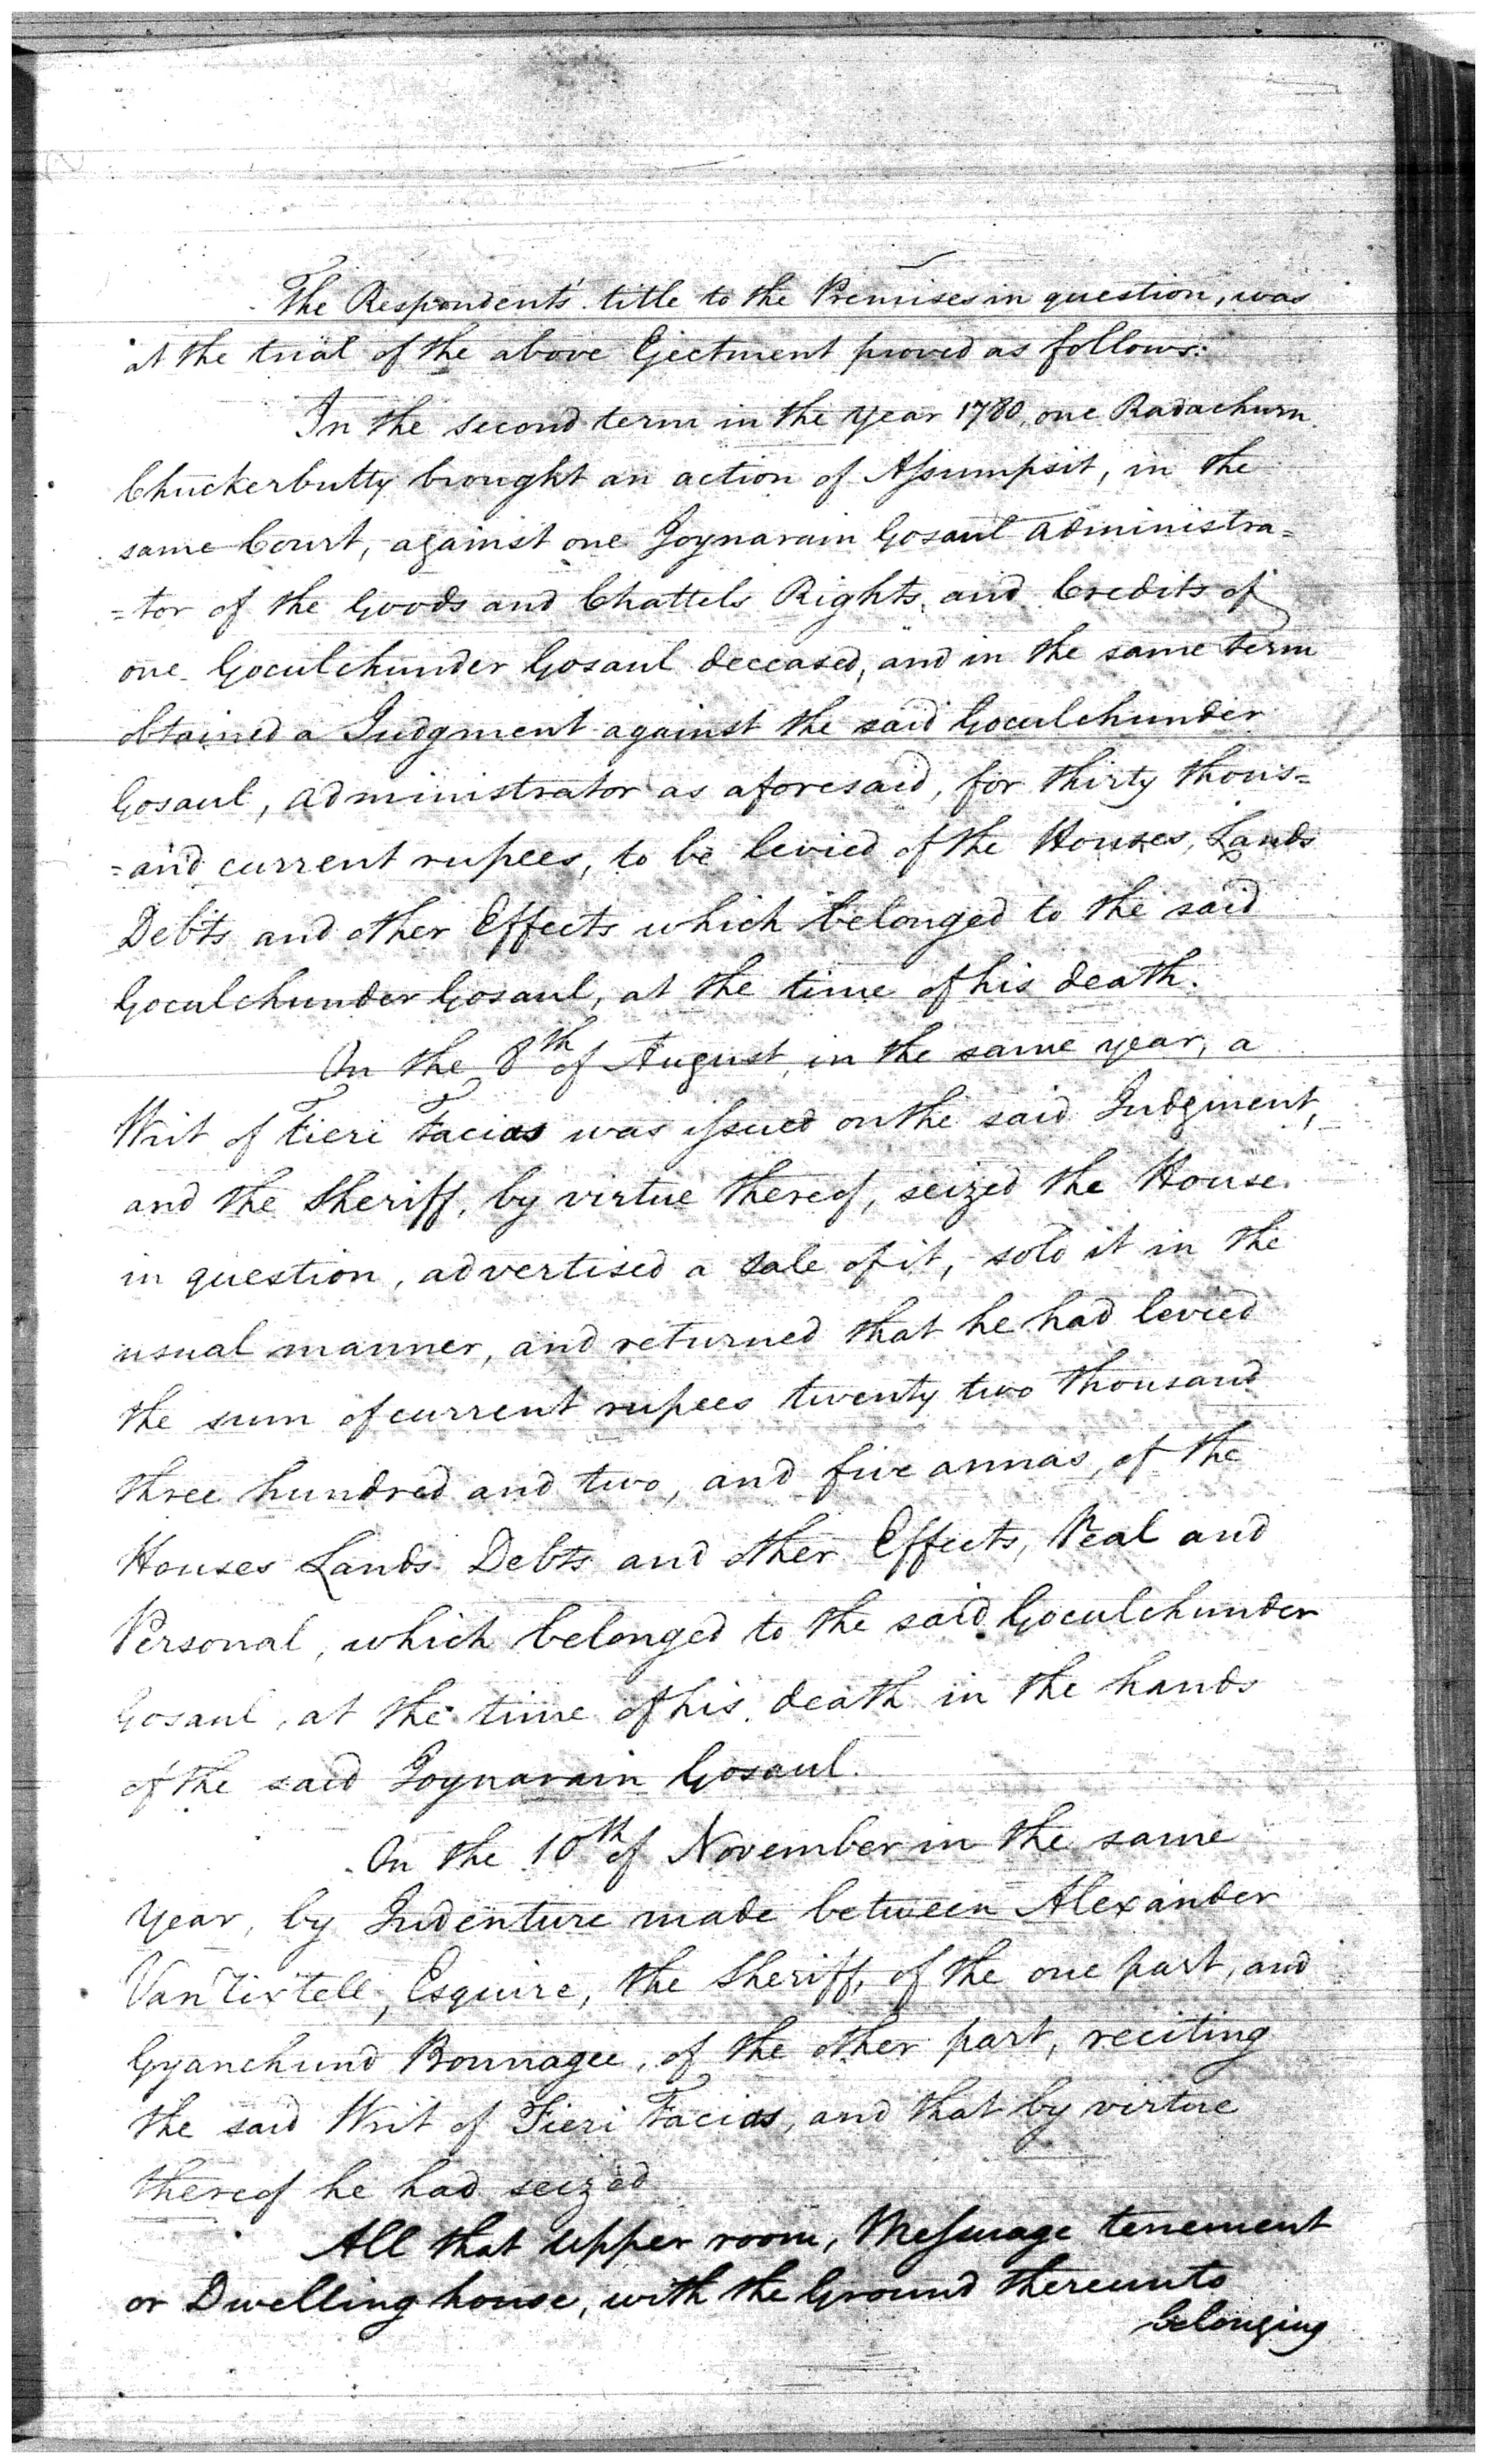 The Respondents' title to the Premises in question, was
at the trial of the above Ejectment proved as follows:
In the second term in the year 1780, one Radachurn
Chuckerbutty brought an action of Assumpsit, in the
same Court, against one Joynarain Gosaul administra=
=tor of the Goods and Chattels Rights, and Credits of
one Goculchunder Gosaul deceased, and in the same term
obtained a Judgment against the said Goculchunder
Gosaul, administrator as aforesaid, for thirty thous=
=and current rupees, to be levied of the Houses, Lands
Debts and other Effects which belonged to the said
Goculchunder Gosaul, at the time of his death.
On the 8th of August, in the same year, a
Writ of Fieri Facias was issued on the said Judgment,
and the Sheriff, by virtue thereof, seized the House
in question, advertised a sale of it, sold it in the
usual manner, and returned that he had levied
the sum of current rupees twenty two thousand
three hundred and two, and five annas, of the
Houses Lands Debts and other Effects, Real and
Personal, which belonged to the said Goculchunder
Gosaul, at the time of his death in the hands
of the said Joynarain Gosaul.
On the 10th of November in the same
year, by Indenture made between Alexander
Van Rixtell, Esquire, the Sheriff, of the one part, and
Gyanchund Bonnagee, of the other part, reciting
the said Writ of Fieri Facias, and that by virtue
thereof he had seized
All that upper room, Messuage tenement
or Dwelling house, with the Ground thereunto
belonging